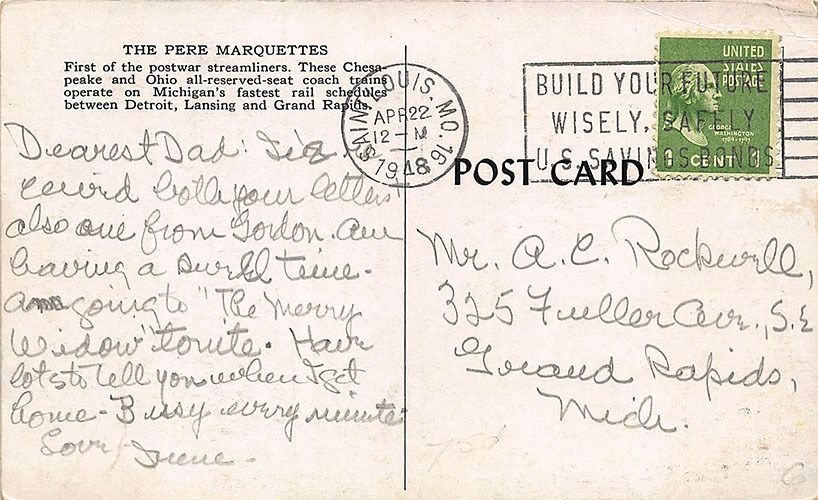 THE PERE MARQUETTES
First of the postwar streamliners. These Chesa-
peake and Ohio all-reserved-seat coach trains
operate on Michigan's fastest rail schedules
between Detroit, Lansing and Grand Rapids.
Dearest Dad:
ceived both your letters
also one from Gordon. Am
having a swell time.
Am going to "The Merry
Widow" tonite. Have
lots to tell you when I get
home - Busy every minute
Love Irene -
SAINT LOUIS, MO. 16
APR 22
12 - M
1948
BUILD YOUR FUTURE
WISELY, SAFELY
U.S. SAVINGS BONDS
UNITED
STATES
POSTAGE
GEORGE
WASHINGTON
1789-1797
1 CENT 1
POST CARD
Mr. A. C. Rockwell,
325 Fuller Ave., S.E
Grand Rapids,
Mich.